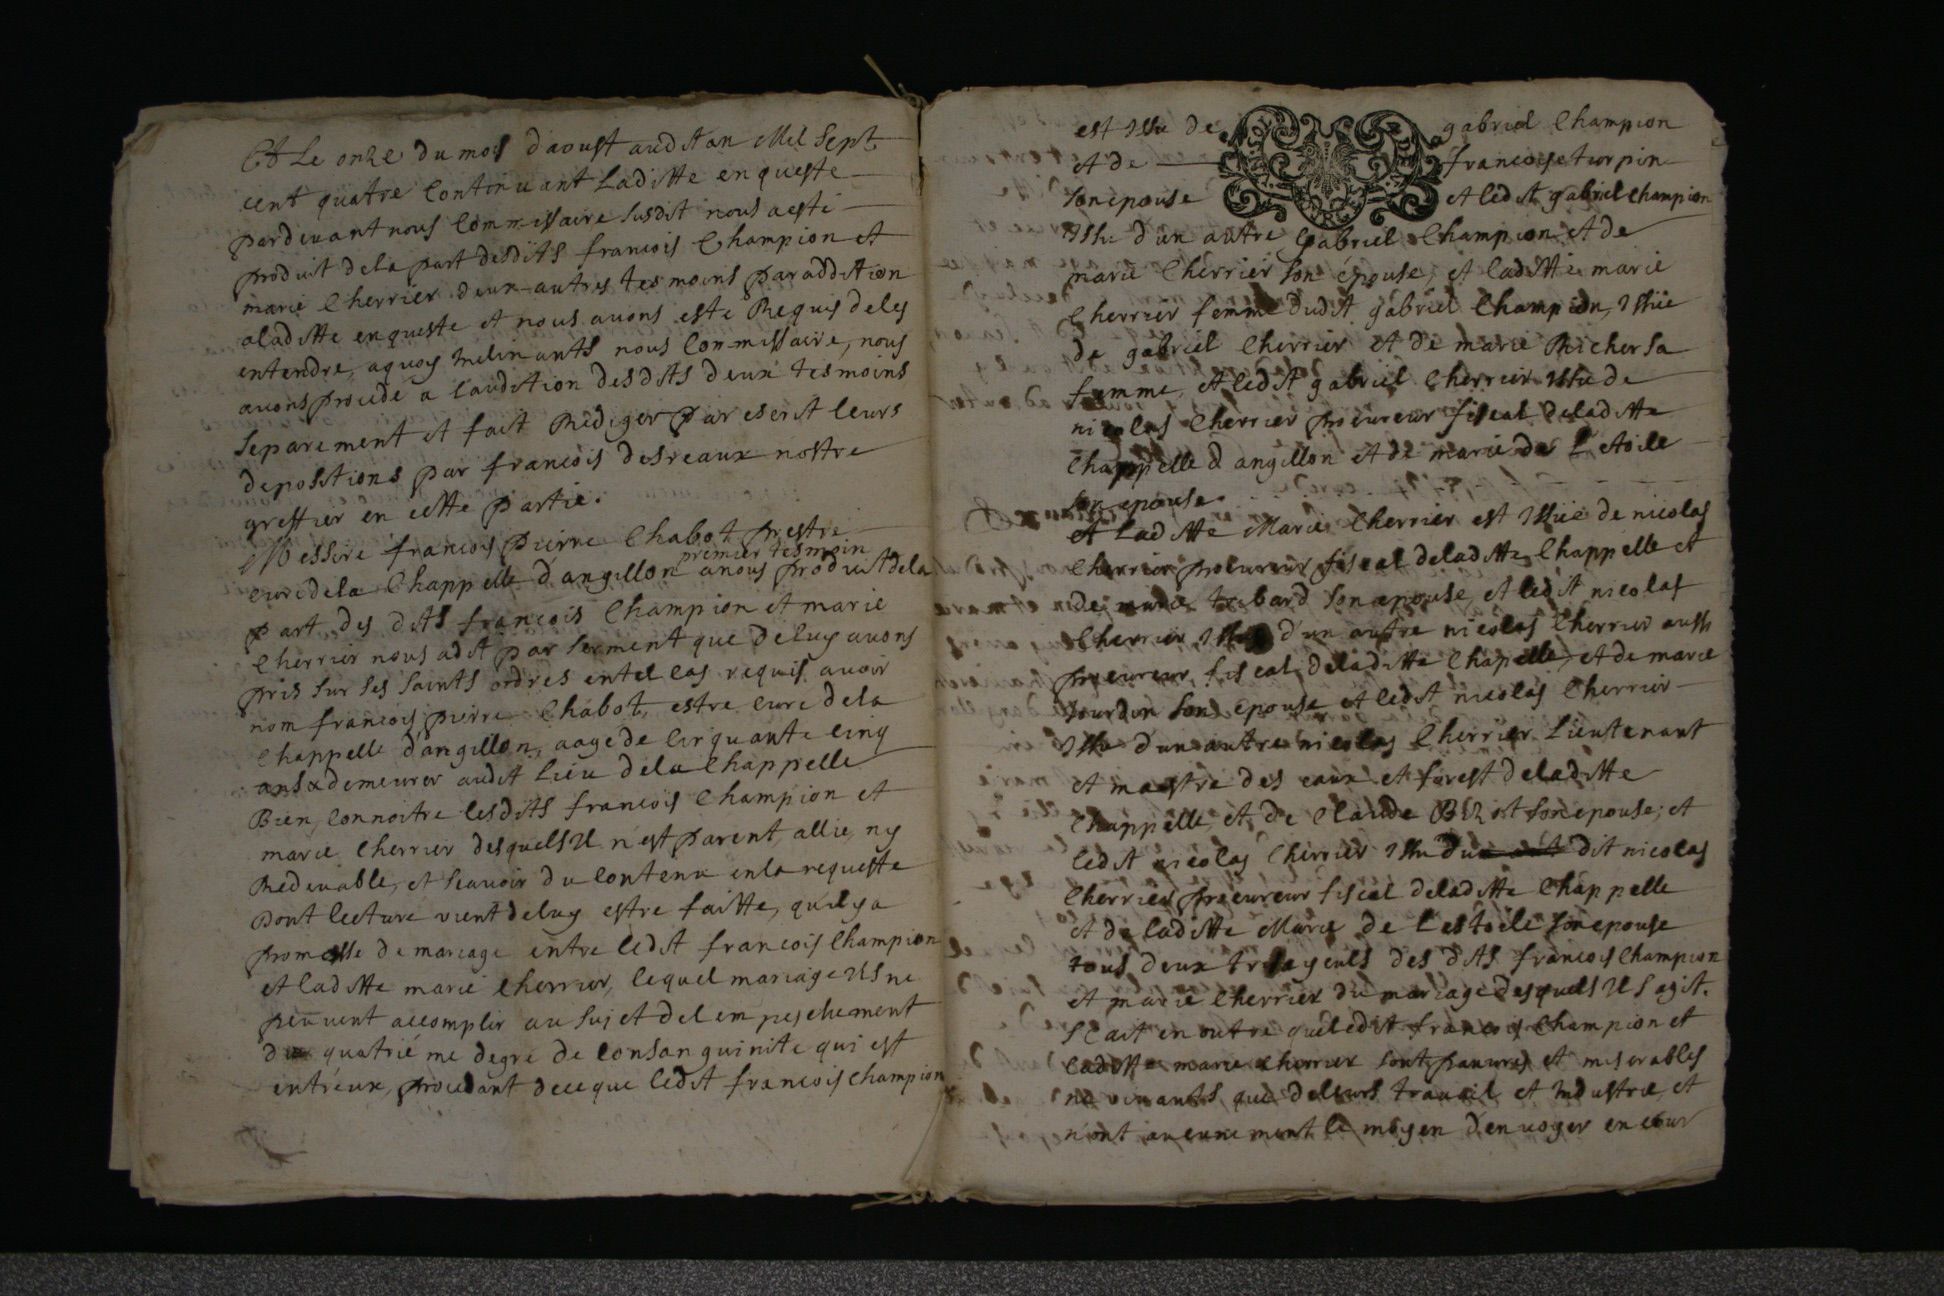 Et Le onze du mois daoust audit an Mil Sept
cent quatre Continuant Laditte enqueste
pardevant nous Commissaire susdit nous a esté
produit de la part desdits francois Champion et
marie Cherrier deux autres tesmoins par addition
a laditte enqueste et nous avons esté Requis de les
entendre, a quoy inclinants nous Commissaire, nous
avons procedé a l'audition desdits deux tesmoins
separement et fait Rediger par escrit leurs
depositions par francois desreaux nostre
greffier en cette partie.
Messire francois pierre Chabot prestre
premier tesmoin
curé de la Chappelle d'angillon a nous produit de la
part des dits francois Champion et marie
Cherrier nous a dit par serment que de luy avons
pris sur ses saints ordres en tel cas requis avoir
nom francois pierre Chabot, estre curé de la
Chappelle d'angillon, aagé de Cinquante Cinq
ans & demeurer audit lieu de la Chappelle
Bien connoitre lesdits francois Champion et
marie Cherrier desquels Il n'est parent, allié, ny
Redevable, et scavoir du contenu en la requeste
dont lecture vient de luy estre faitte, quil y a
promesse de mariage entre ledit francois Champion
et laditte marie Cherrier, lequel mariage Ils ne
peuvent accomplir au sujet de l empeschement
du quatriéme degré de Consanguinité qui est
entr'eux, procedant de ce que ledit francois Champion
est Issu de gabriel Champion
et de francoise turpin
son epouse et ledit gabriel Champion
Issu d'un autre gabriel Champion et de
marie Cherrier son épouse, et laditte marie
Cherrier femme dudit gabriel Champion, Issüe
de gabriel Cherrier et de marie Richer sa
femme, et ledit gabriel Cherrier Issu de
nicolas Cherrier procureur fiscal de laditte
Chappelle d angillon et de marie de L'etoile
son epouse.
et Laditte Marie Cherrier est Issüe de nicolas
Cherrier procureur fiscal de laditte Chappelle et
de marie tabard son epouse, et ledit nicolas
Cherrier, Issu d'un autre nicolas Cherrier aussi
procureur fiscal de laditte Chapelle, et de marie
Jourdin son epouse et ledit nicolas Cherrier
Issu d'un autre nicolas Cherrier Lieutenant
et maistre des eaux et forest de laditte
Chappelle, et de Claude son epouse; et
ledit nicolas Cherrier Issu du dit nicolas
Cherrier procureur fiscal de laditte Chappelle
et de laditte Marie de Lestoile son epouse
tous deux trisayeuls des dits francois Champion
et marie Cherrier du mariage desquels Il s agit.
Scait en outre que ledit francois Champion et
laditte marie Cherrier sont pauvres et miserables
ne vivants que de leurs travail et Industrie, et
n'ont aucunement le moyen d'envoyer en cour